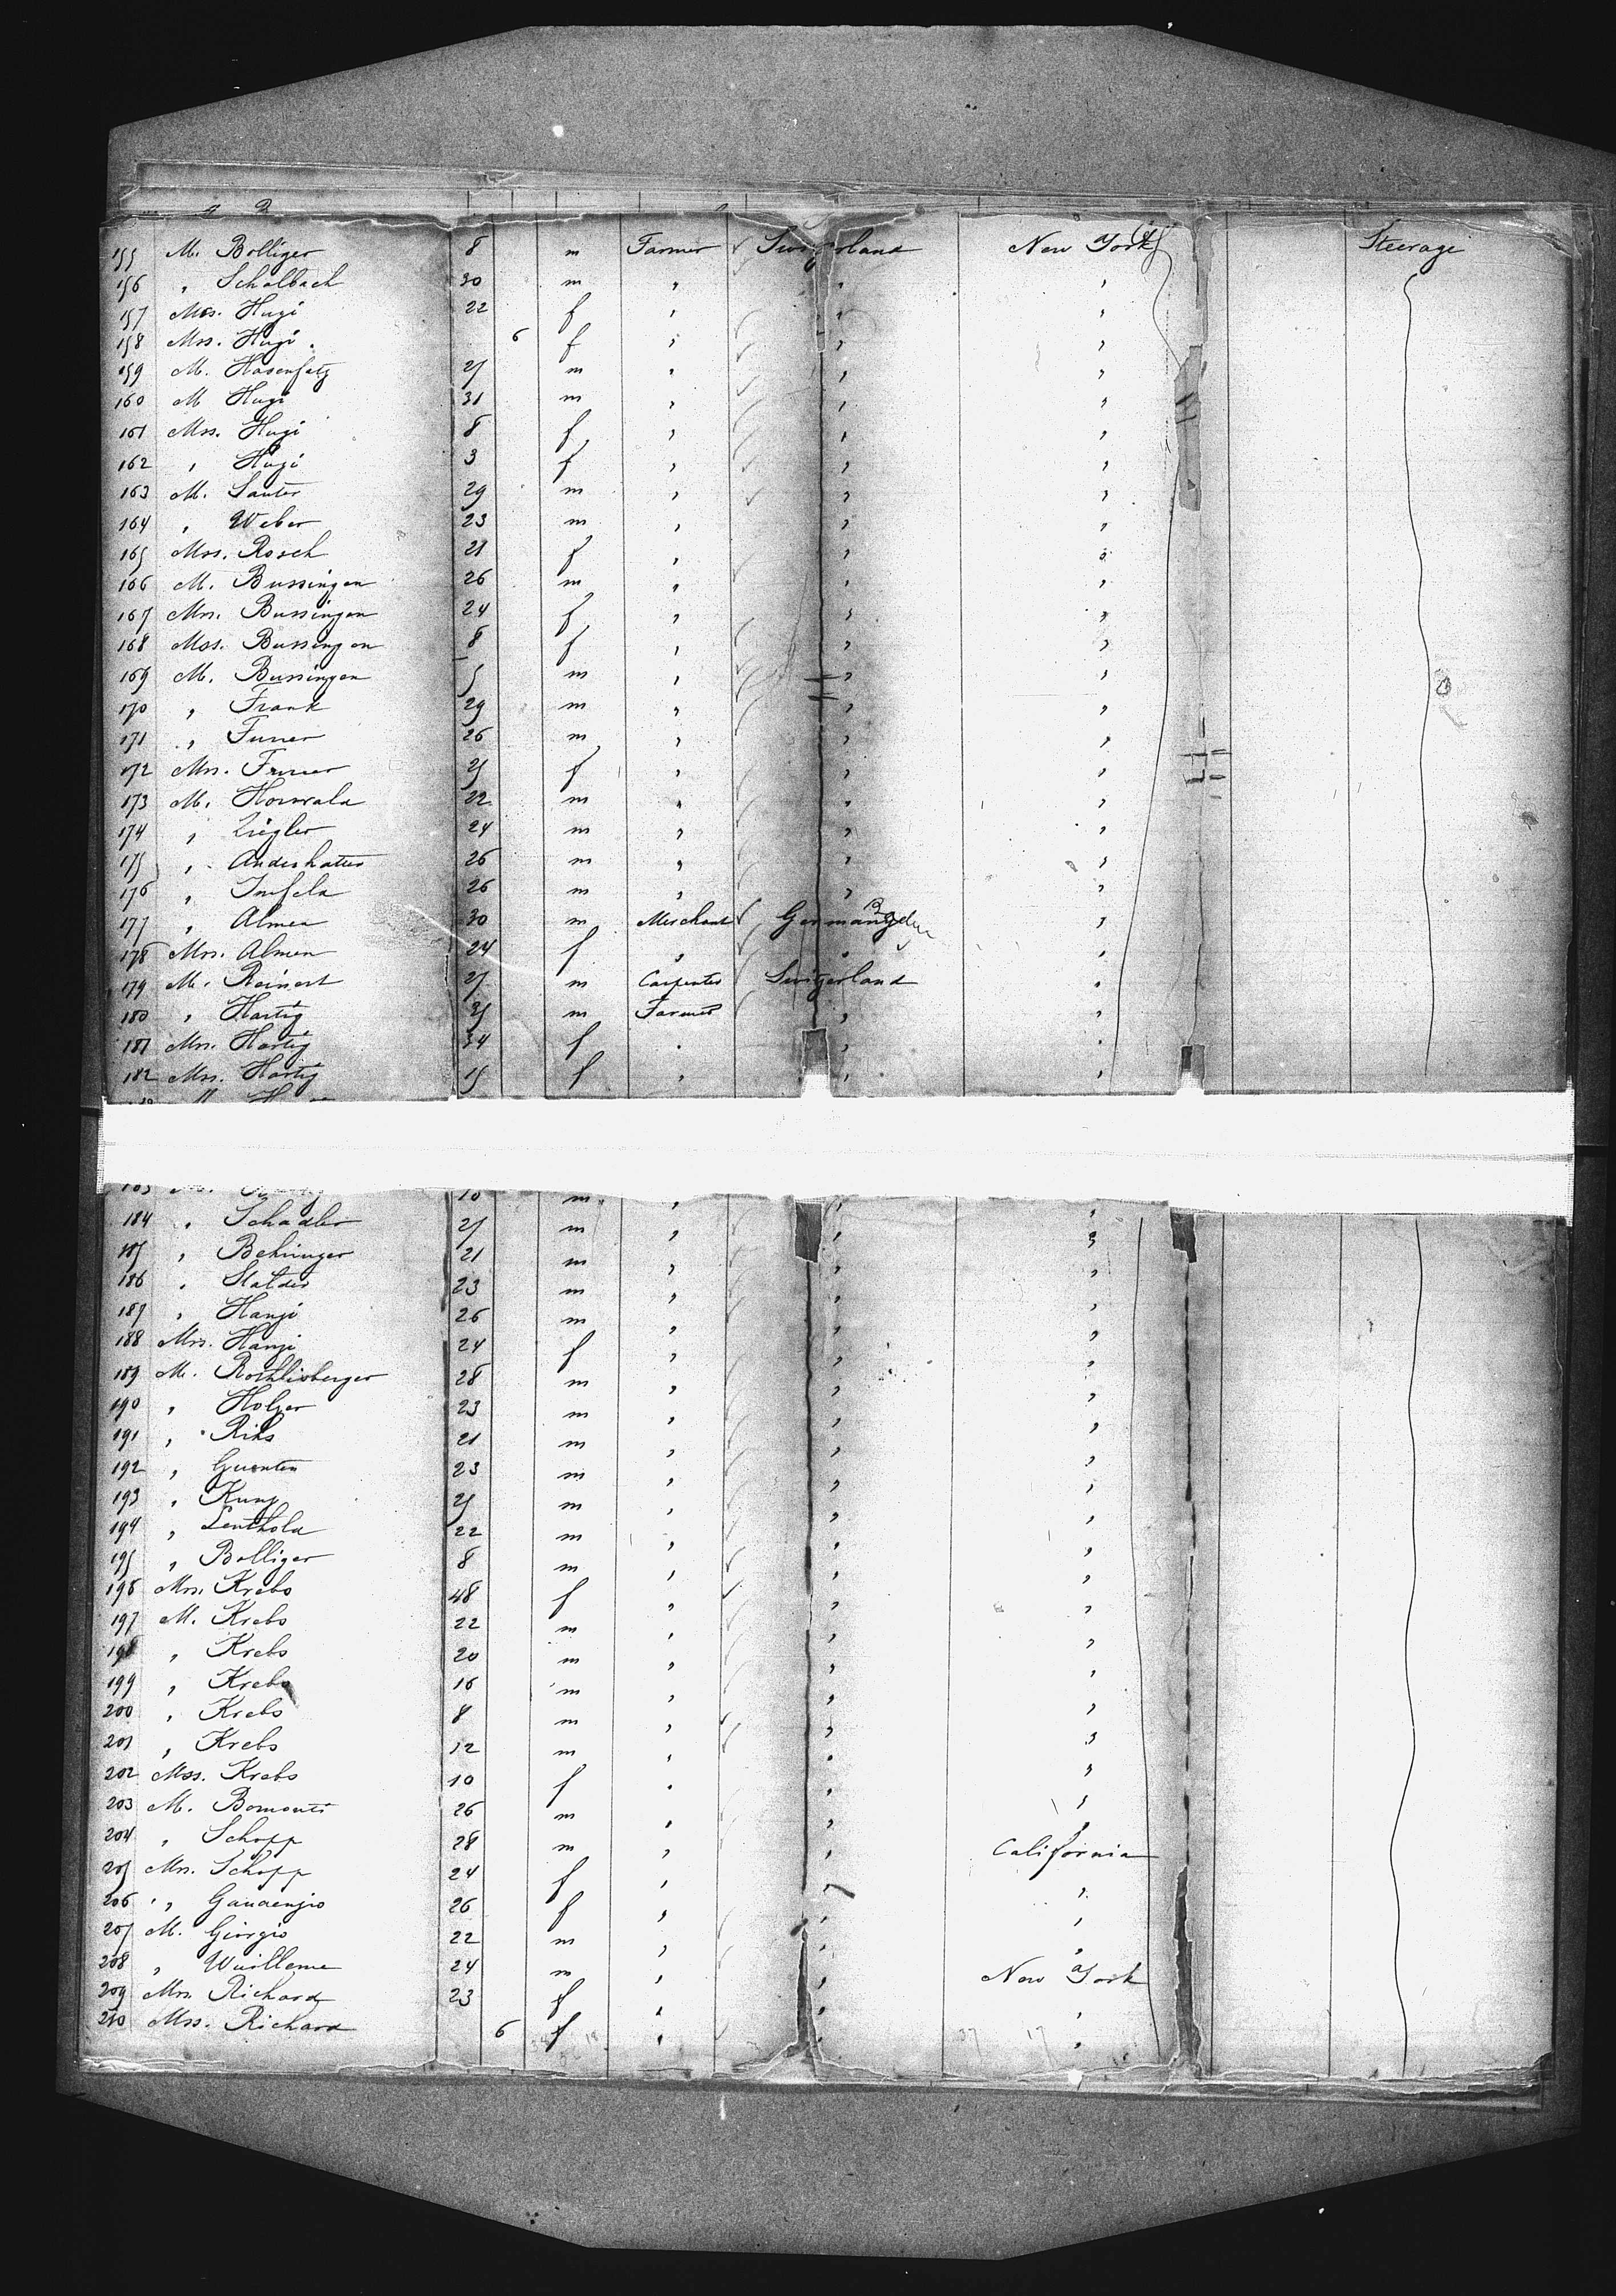 155 M. Bolliger 8 m Farmer Switzerland New York Steerage
156 " Schalbach 30 m " " "
157 Mss. Hugi 22 f " " "
158 Mss. Hugi 6 f " " "
159 M. Hasenfatz 25 m " " "
160 M Hugi 31 m " " "
161 Mss. Hugi 8 f " " "
162 " Hugi 3 f " " "
163 M. Sauter 29 m " " "
164 " Weber 23 m " " "
165 Mss. Rosch 21 f " " "
166 M. Bussingen 26 m " " "
167 Mrs. Bussingen 24 f " " "
168 Mss. Bussingen 8 f " " "
169 M. Bussingen 5 m " " "
170 " Frank 29 m " " "
171 " Furrer 26 m " " "
172 Mrs. Furrer 25 f " " "
173 M. Hornald 22 m " " "
174 " Ziegler 24 m " " "
175 " Anderhatter 26 m " " "
176 " Infeld 26 m " " "
177 " Almen 30 m Merchant Germany "
178 Mrs. Almen 24 f " " "
179 M. Reinert 25 m Carpenter Switzerland "
180 " Hartig 35 m Farmer " "
181 Mrs. Hartig 34 f " " "
182 Mss. Hartig 15 f " " "
183 10 m " " "
184 " Schadler 25 m " " "
185 " Behringer 21 m " " "
186 " Stalder 23 m " " "
187 " Hanzi 26 m " " "
188 Mrs. Hanzi 24 f " " "
189 M. Rothlisberger 28 m " " "
190 " Holzer 23 m " " "
191 " Riks 21 m " " "
192 " Guenten 23 m " " "
193 " Kunz 25 m " " "
194 " Leuthold 22 m " " "
195 " Bolliger 8 m " " "
196 Mrs. Krebs 48 f " " "
197 M. Krebs 22 m " " "
198 " Krebs 20 m " " "
199 " Krebs 16 m " " "
200 " Krebs 8 m " " "
201 " Krebs 12 m " " "
202 Mss. Krebs 10 f " " "
203 M. Bomonti 26 m " " "
204 " Schopp 28 m " " California
205 Mrs. Schopp 24 f " " "
206 " Gaudenzio 26 f " " "
207 M. Giorgio 22 m " " "
208 " Wuilleme 24 m " " New York
209 Mrs Richard 23 f " " "
210 Mss. Richard 6 f " " "